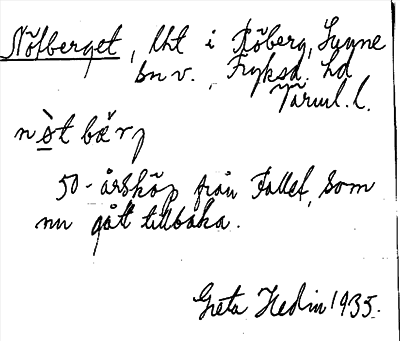 Nötberget, lht i Röberg, Sunne
sn v., Fryksd. hd
Värml. l.
nò̤t bær̆j
50-årsköp från Fallet, som
nu gått tillbaka.
Greta Hedin 1935.